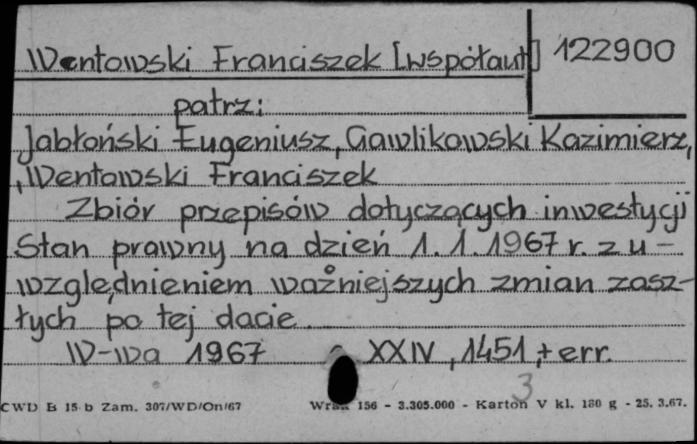 Wentowski Franciszek [współaut] 122900
patrz:
Jabłoński Eugeniusz, Gawlikowski Kazimierz,
, Wentowski Franciszek
Zbiór przepisów dotyczących inwestycji
Stan prawny na dzień 1.1.1967 r. z u-
względnieniem ważniejszych zmian zasz-
łych po tej dacie.
W-wa 1967 XXIV, 1451, + err.
3
CWD B 15 b Zam. 307/WD/On/67 Wrsk 156 - 3.305.000 - Karton V kl. 180 g - 25. 3.67.